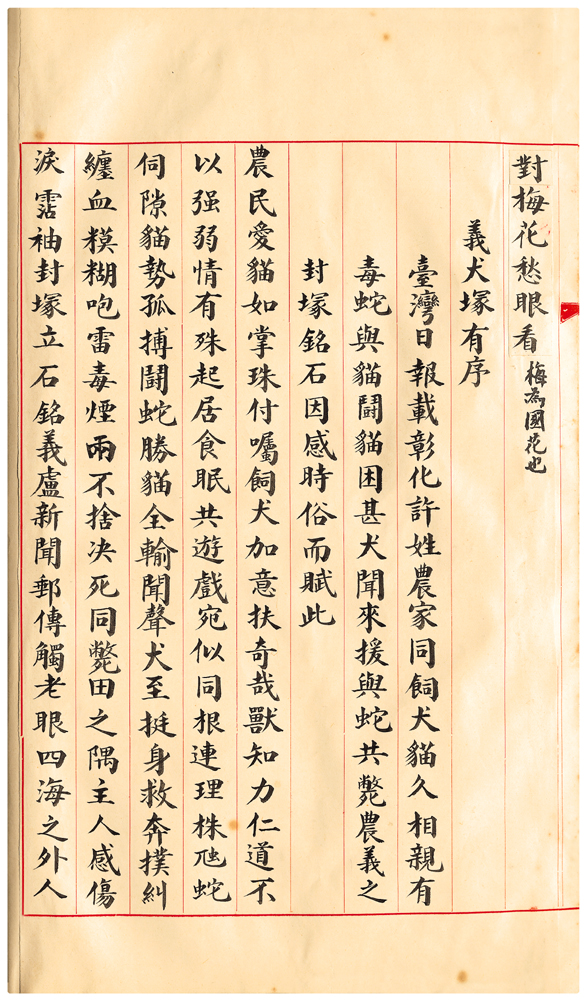 對梅花愁眼看 梅為國花也
義犬塚有序
臺灣日報載彰化許姓農家同飼犬貓久相親有
毒蛇與貓鬪貓困甚犬聞來援與蛇共斃農義之
封塚銘石因感時俗而賦此
農民愛貓如掌珠付囑飼犬加意扶奇哉獸知力仁道不
以强弱情有殊起居食眠共遊戲宛似同根連理株虺蛇
伺隙貓勢孤搏鬪蛇勝貓全輸聞聲犬至挺身救奔撲糾
纏血糢糊咆雷毒煙兩不捨决死同斃田之隅主人感傷
淚霑袖封塚立石銘義盧新聞郵傳觸老眼四海之外人